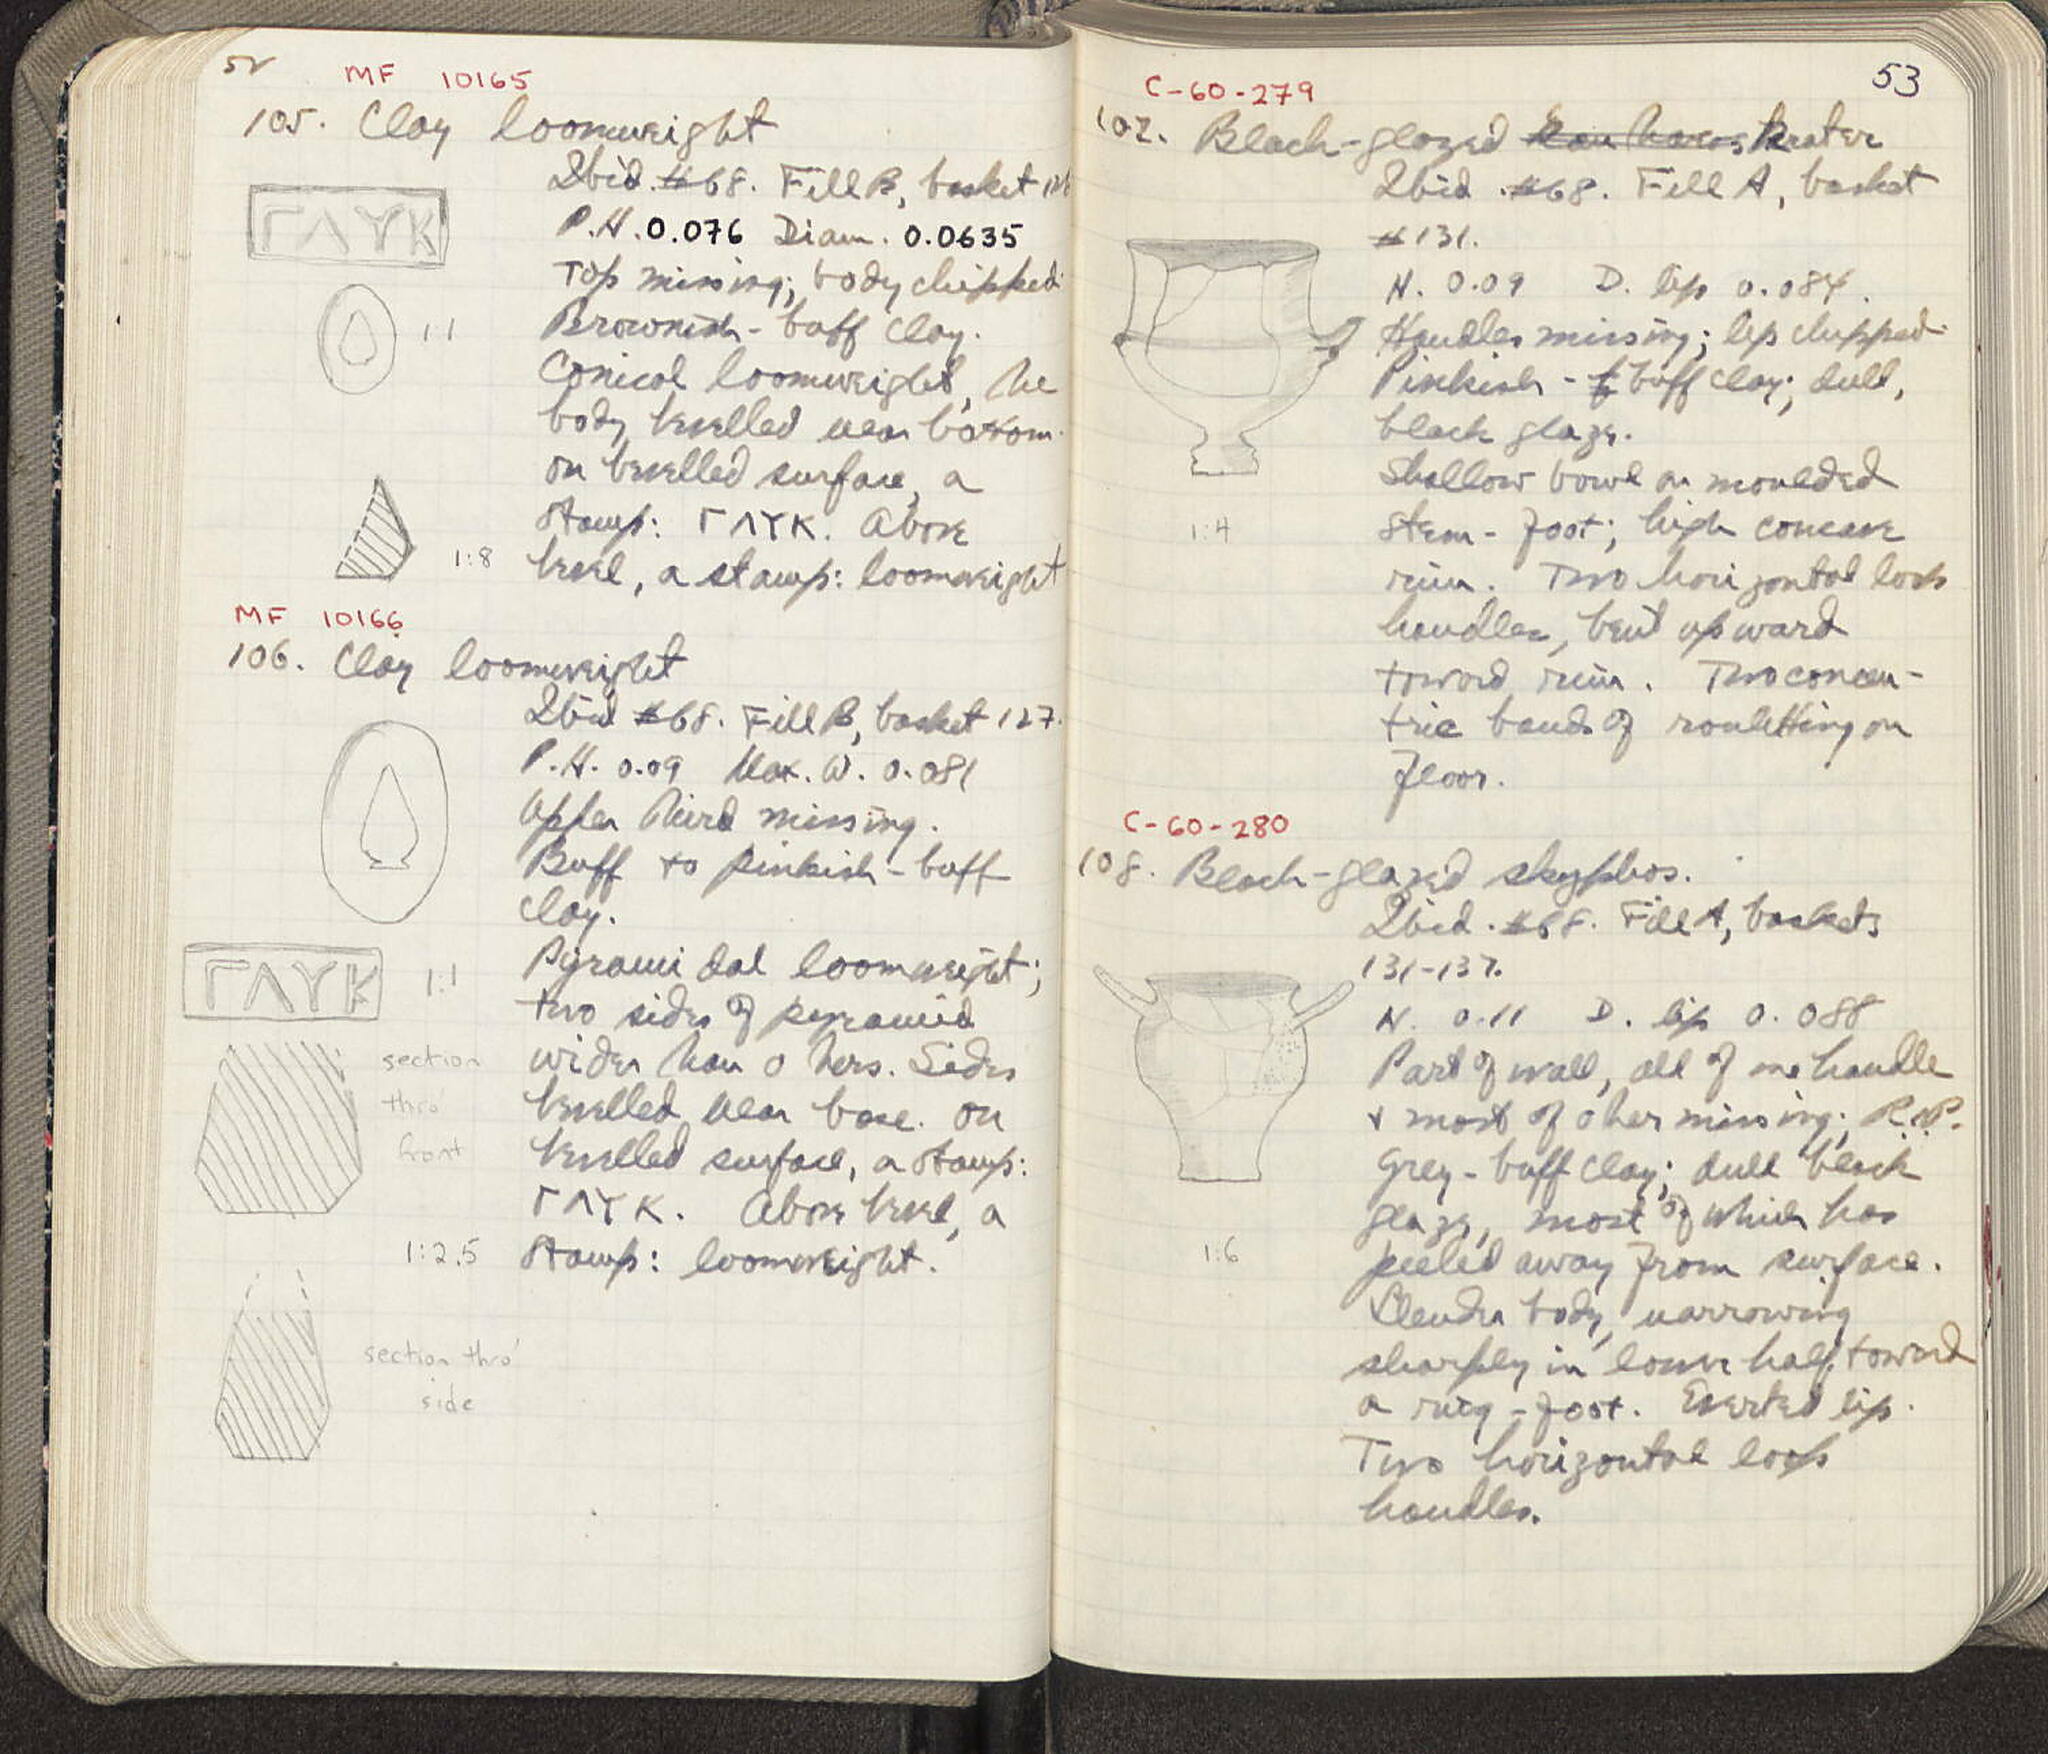 52
MF 10165
105. Clay loomweight
Ibid. #68. Fill B, basket
P.H. 0.076 Diam. 0.0635
Top missing; body chipped.
Brownish-buff clay.
Conical loomweight, the
body bevelled near bottom.
on bevelled surface, a
stamp: ΓΛΥΚ. Above
bevel, a stamp: loomweight
ΓΛΥΚ
1:1
1:8
MF 10166
106. Clay loomweight
Ibid #68. Fill B, basket 127.
P.H. 0.09 Max. W. 0.081
Upper third missing.
Buff to pinkish-buff
clay.
Pyramidal loomweight;
two sides of pyramid
wider than others. Sides
bevelled near base. On
bevelled surface, a stamp:
ΓΛΥΚ. Above bevel, a
stamp: loomweight.
ΓΛΥΚ
1:1
section
thro'
front
1:2.5
section thro'
side
53
C-60-279
107. Black-glazed Kantharos Krater
Ibid. #68. Fill A, basket
#131.
H. 0.09 D. lip 0.084.
Handles missing; lip chipped.
Pinkish-buff clay; dull,
black glaze.
Shallow bowl on moulded
stem-foot; high concave
rim. Two horizontal loop
handles, bent upward
toward rim. Two concen-
tric bands of rouletting on
floor.
1:4
C-60-280
108. Black-glazed skyphos.
Ibid. #68. Fill A, baskets
131-137.
H. 0.11 D. lip 0.088
Part of wall, all of one handle
+ most of other missing; R.P.
Grey-buff clay; dull black
glaze, most of which has
peeled away from surface.
Slender body, narrowing
sharply in lower half toward
a ring-foot. Everted lip.
Two horizontal loop
handles.
1:6